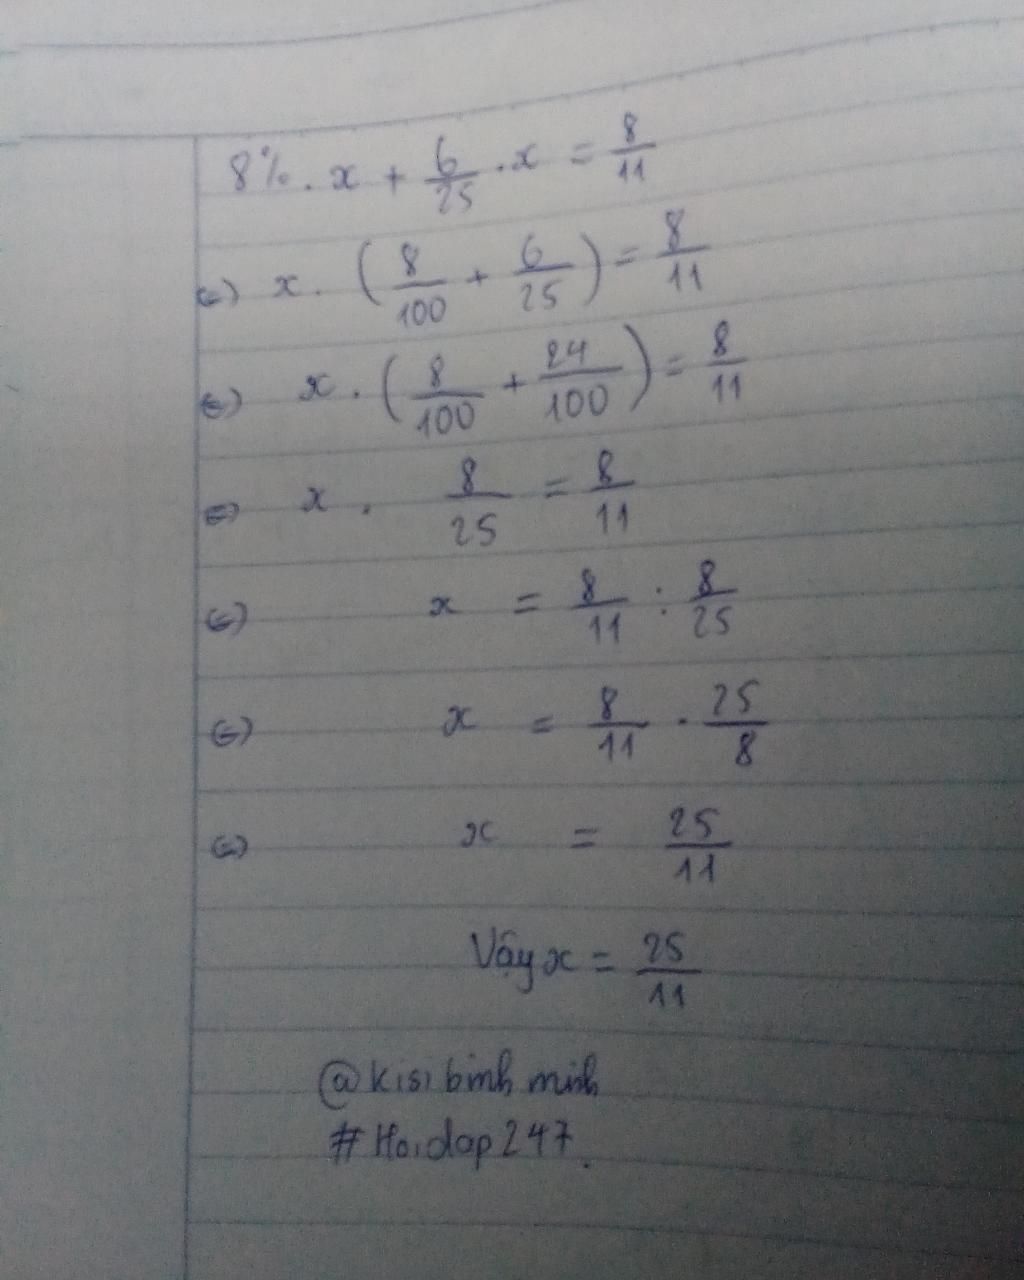 8% . x + 6/25 . x = 8/11
<=> x . (8/100 + 6/25) = 8/11
<=> x . (8/100 + 24/100) = 8/11
<=> x . 8/25 = 8/11
<=> x = 8/11 : 8/25
<=> x = 8/11 . 25/8
<=> x = 25/11
Vậy x = 25/11
@kisibinh minh
#Hoidap247.